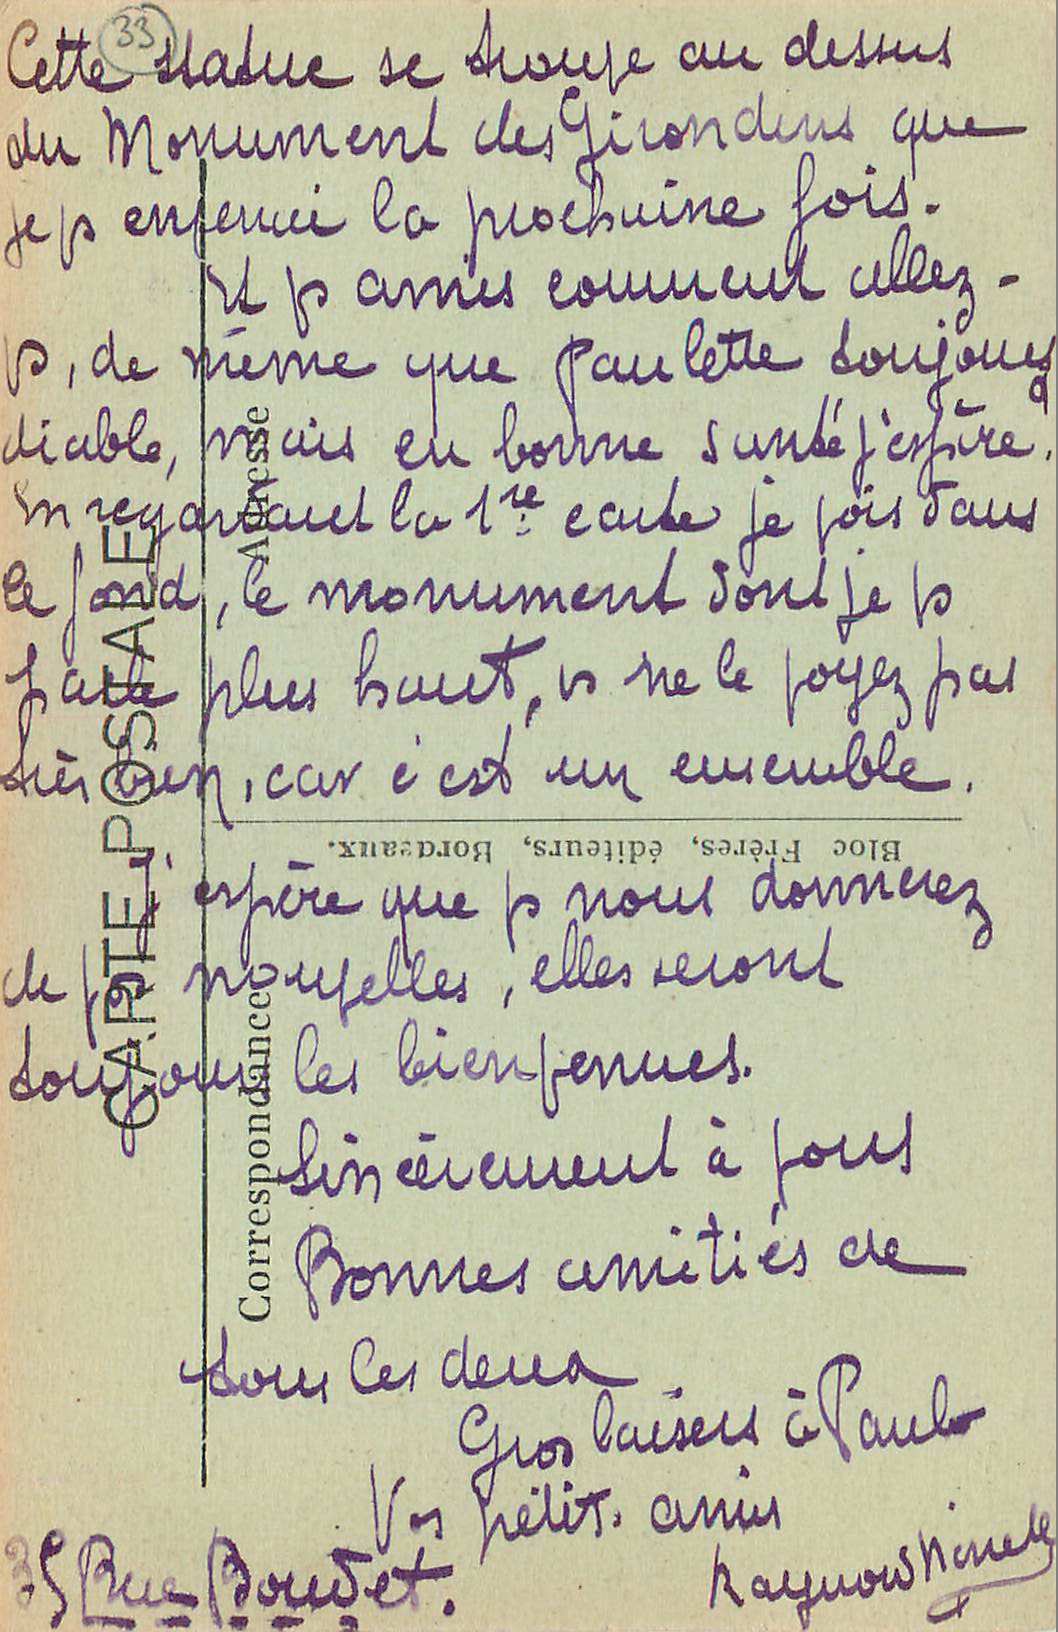 33
Cette statue se trouve au dessus
du Monument des Girondins que
je v enverrai la prochaine fois.
Et vs amis comment allez-
vs, de même que Paulette toujours
diable, mais en bonne santé j'espère.
En regardant la 1re carte je vois dans
le fond, le monument dont je vs
parle plus haut, vs ne le voyez pas
très bien, car c'est un ensemble.
Bloc Frères, éditeurs, Bordeaux.
J'espère que vs nous donnerez
de vos nouvelles, elles seront
toujours les bienvenues.
Sincèrement à vous
Bonnes amitiés de
tous les deux
Gros baisers à Paule
Vos petits amis
Raymond
35 Rue Boudet.
CARTE POSTALE
Correspondance
Adresse